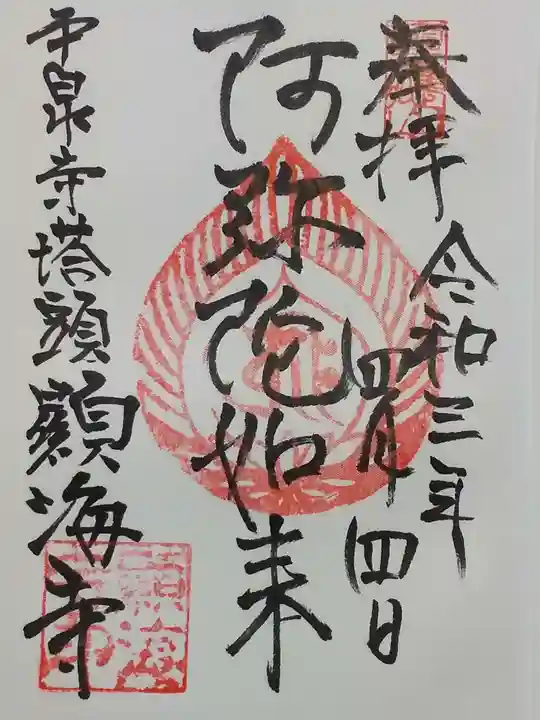 奉拝
令和三年
四月四日
阿弥陀如来
平泉寺塔頭顕海寺